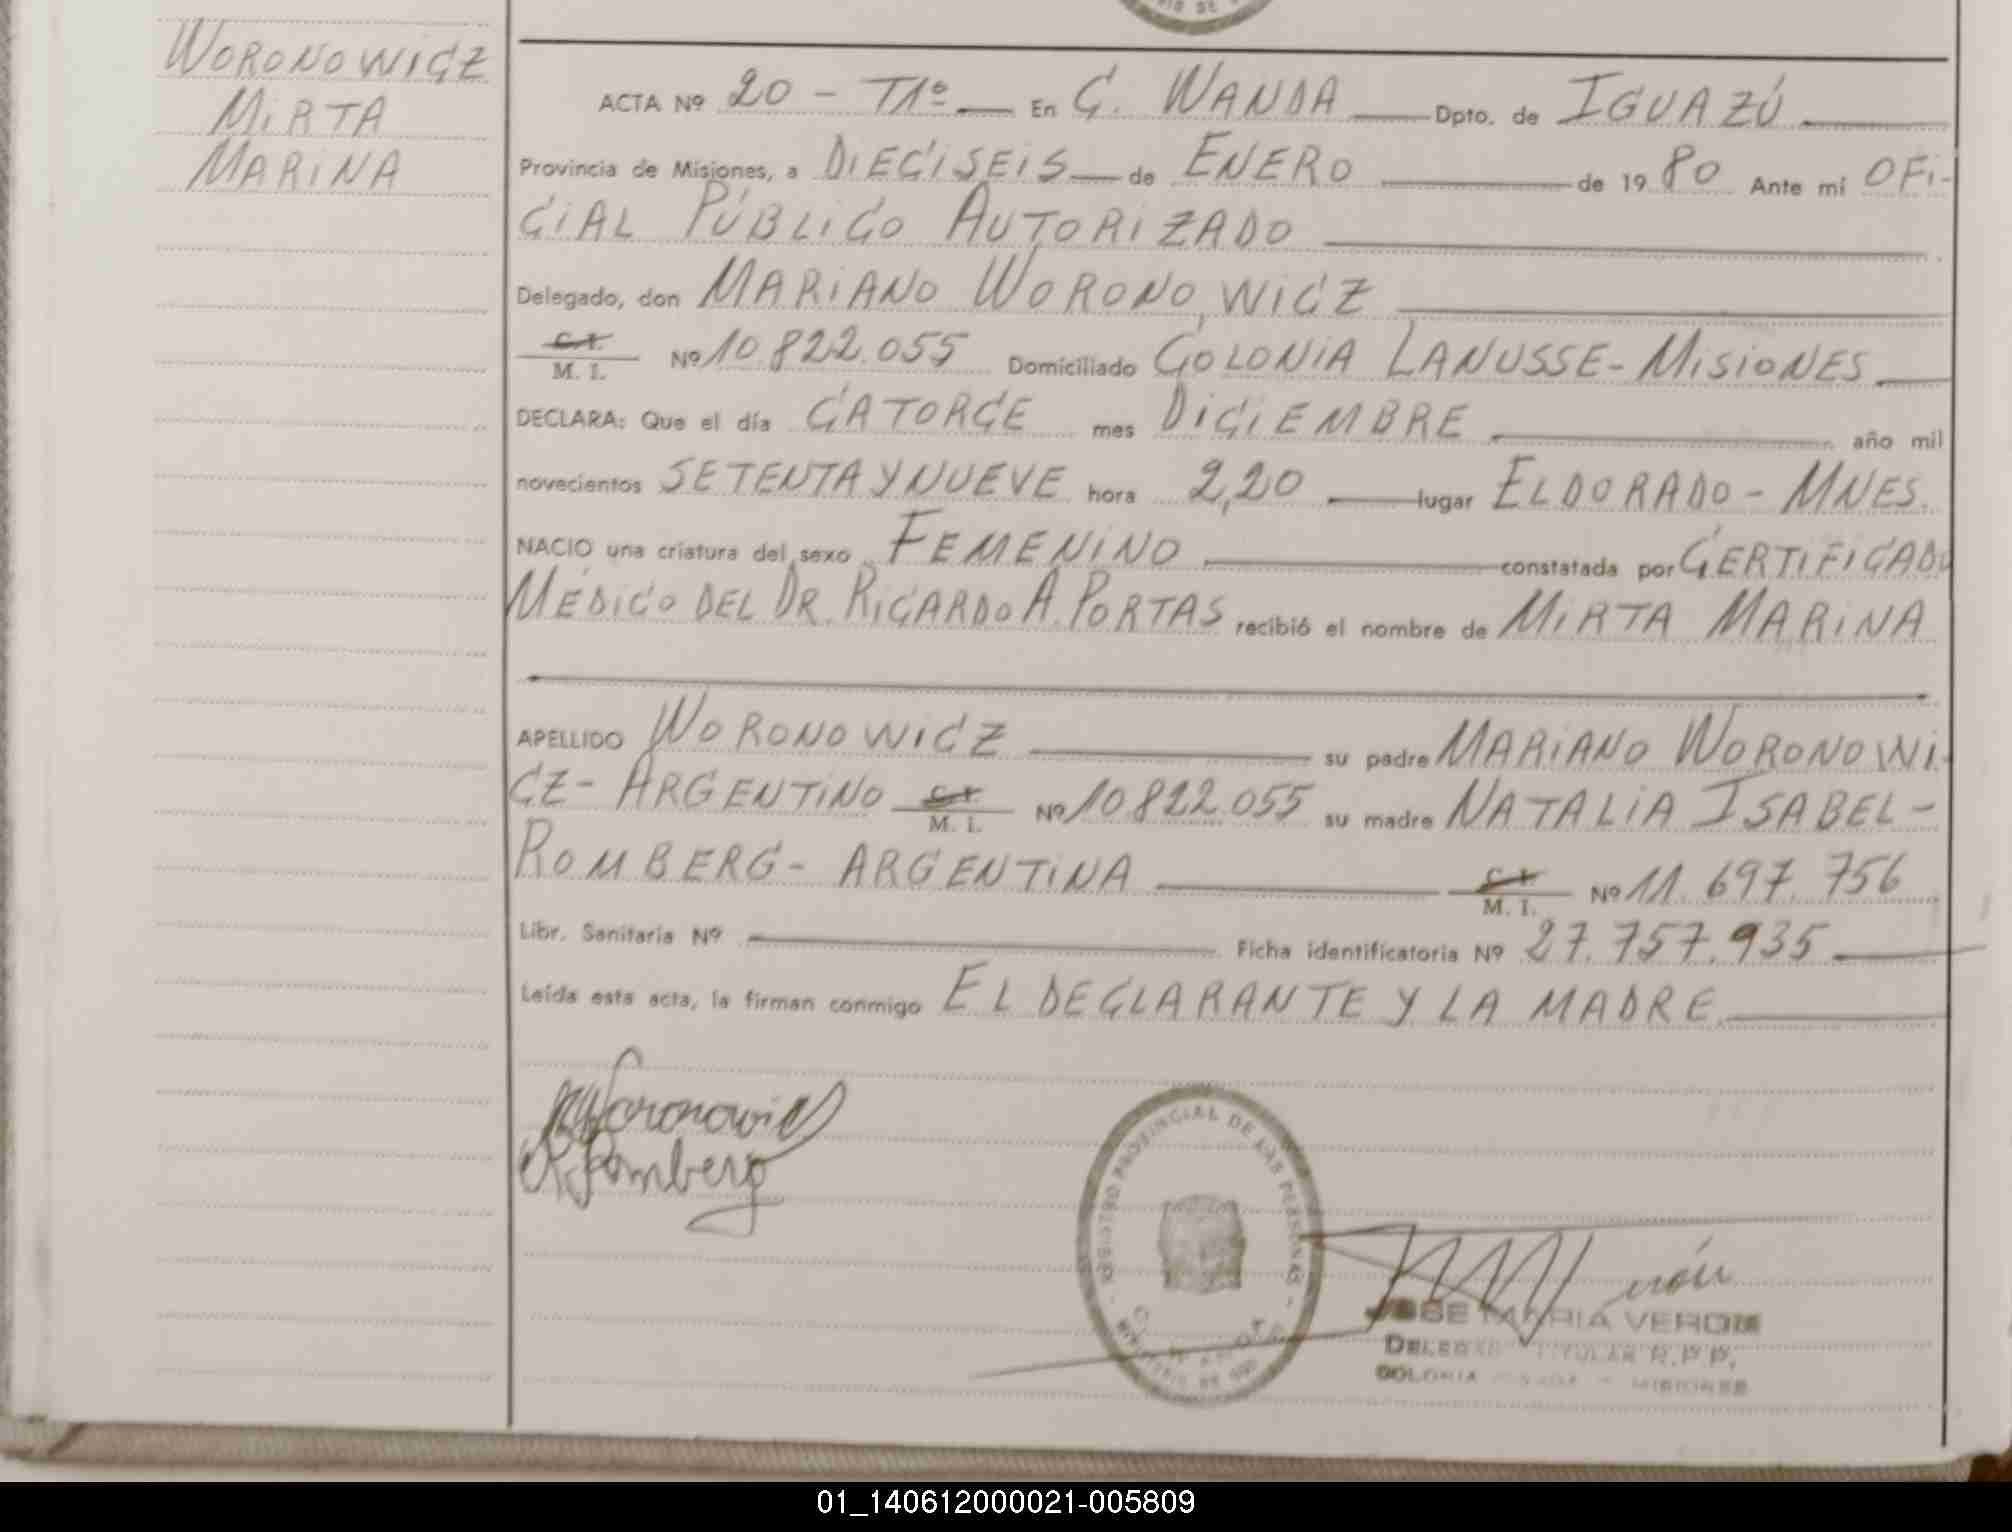 WORONOWICZ
MIRTA
MARINA
ACTA Nº 20 - T1º En C. WANDA Dpto. de IGUAZÚ
Provincia de Misiones, a DIECISEIS de ENERO de 19 80 Ante mí OFI-
CIAL PÚBLICO AUTORIZADO
Delegado, don MARIANO WORONOWICZ
C.I.
M. I. Nº 10.822.055 Domiciliado COLONIA LANUSSE - MISIONES
DECLARA: Que el día CATORCE mes DICIEMBRE año mil
novecientos SETENTA Y NUEVE hora 2,20 lugar ELDORADO - MNES.
NACIO una criatura del sexo FEMENINO constatada por CERTIFICADO
MÉDICO DEL DR. RICARDO A. PORTAS recibió el nombre de MIRTA MARINA
APELLIDO WORONOWICZ su padre MARIANO WORONOWI-
CZ - ARGENTINO C.I. M. I. Nº 10.822.055 su madre NATALIA ISABEL -
ROMBERG - ARGENTINA C.I. M. I. Nº 11.697.756
Libr. Sanitaria Nº Ficha identificatoria Nº 27.757.935
Leída esta acta, la firman conmigo EL DECLARANTE Y LA MADRE
Woronowicz
Romberg
REGISTRO PROVINCIAL DE LAS PERSONAS
JOSE MARIA VERON
DELEGADO TITULAR R.P.P.
COLONIA WANDA - MISIONES
01_140612000021-005809